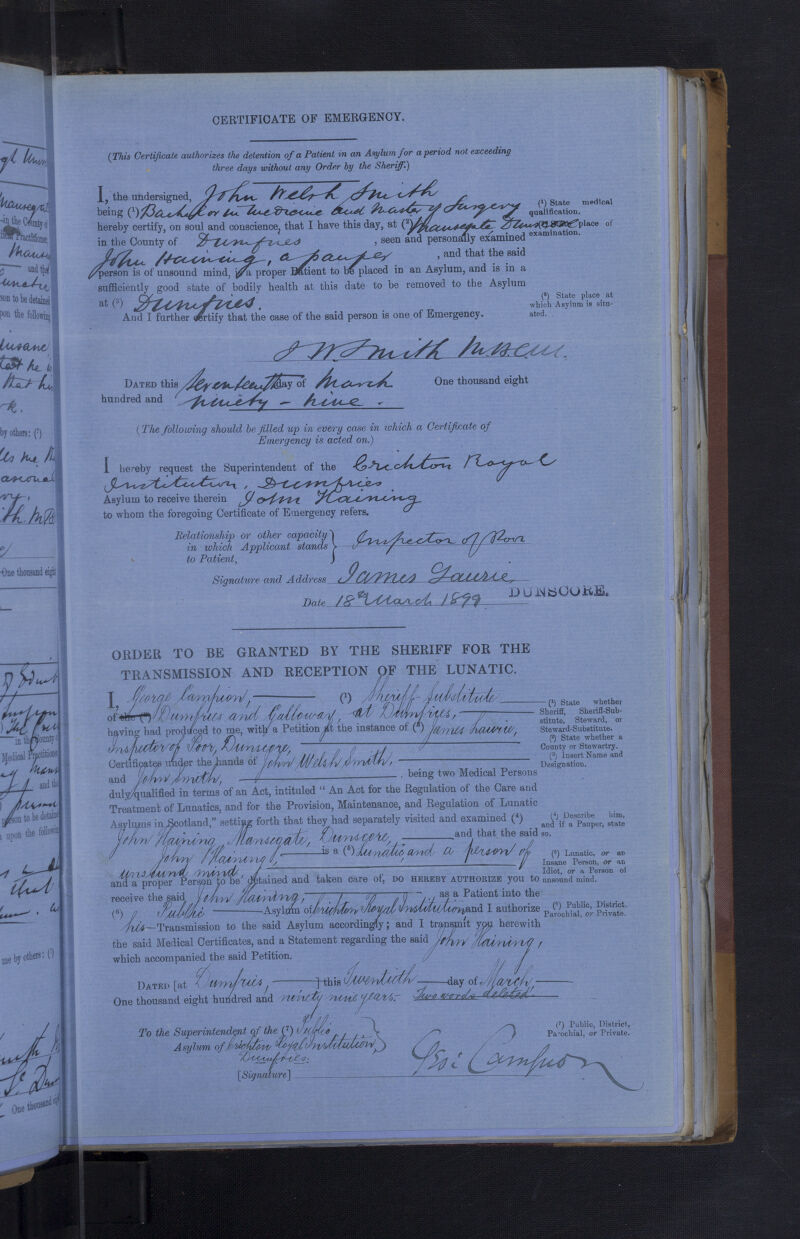 CERTIFICATE OF EMERGENCY.
(This Certificate authorizes the detention of a Patient in an Asylum for a period not exceeding
three days without any Order by the Sheriff.)
I, the undersigned, John Welsh Smith
being (¹) Bachelor in Medicine and Master of Surgery
(¹) State medical
qualification.
hereby certify, on soul and conscience, that I have this day, at (²) Mansegate, Dunscore
place of
examination.
in the County of Dumfries , seen and personally examined
John Haining, a pauper , and that the said
person is of unsound mind, is a proper Patient to be placed in an Asylum, and is in a
sufficiently good state of bodily health at this date to be removed to the Asylum
at (³) Dumfries.
(³) State place at
which Asylum is situ-
ated.
And I further certify that the case of the said person is one of Emergency.
J W. Smith M.B.C.M.
DATED this seventeenth day of March One thousand eight
hundred and ninety-nine.
(The following should be filled up in every case in which a Certificate of
Emergency is acted on.)
I hereby request the Superintendent of the Crichton Royal
Institution, Dumfries
Asylum to receive therein John Haining
to whom the foregoing Certificate of Emergency refers.
Relationship or other capacity
in which Applicant stands
to Patient,
Inspector of Poor
Signature and Address James Laurie
DUNSCORE.
Date 18th March 1899
ORDER TO BE GRANTED BY THE SHERIFF FOR THE
TRANSMISSION AND RECEPTION OF THE LUNATIC.
I, George Campion, (¹) Sheriff Substitute
of the (²) Dumfries and Galloway, at Dumfries,
having had produced to me, with a Petition at the instance of (³) James Lawrie,
Inspector of Poor, Dunscore,
(¹) State whether
Sheriff, Sheriff-Sub-
stitute, Steward, or
Steward-Substitute.
(²) State whether a
County or Stewartry.
(³) Insert Name and
Designation.
Certificates under the hands of John Welsh Smith,
and John Smith, , being two Medical Persons
duly qualified in terms of an Act, intituled "An Act for the Regulation of the Care and
Treatment of Lunatics, and for the Provision, Maintenance, and Regulation of Lunatic
Asylums in Scotland," setting forth that they had separately visited and examined (⁴)
John Haining, Mansegate, Dunscore, and that the said
(⁴) Describe him,
and if a Pauper, state
so.
John Haining, is a (⁵) Lunatic, and a person of
unsound mind
(⁵) Lunatic, or an
Insane Person, or an
Idiot, or a Person of
unsound mind.
and a proper Person to be detained and taken care of, DO HEREBY AUTHORIZE YOU to
receive the said John Haining, as a Patient into the
(⁶) Public Asylum of Crichton Royal Institution, and I authorize
(⁶) Public, District,
Parochial, or Private.
his Transmission to the said Asylum accordingly; and I transmit you herewith
the said Medical Certificates, and a Statement regarding the said John Haining,
which accompanied the said Petition.
DATED [at Dumfries, ] this Twentieth day of March,
One thousand eight hundred and ninety nine years. Two words deleted.
To the Superintendent of the (⁷) Public
Asylum of Crichton Royal Institution,
Dumfries.
(⁷) Public, District,
Parochial, or Private.
[Signature] Geo: Campion